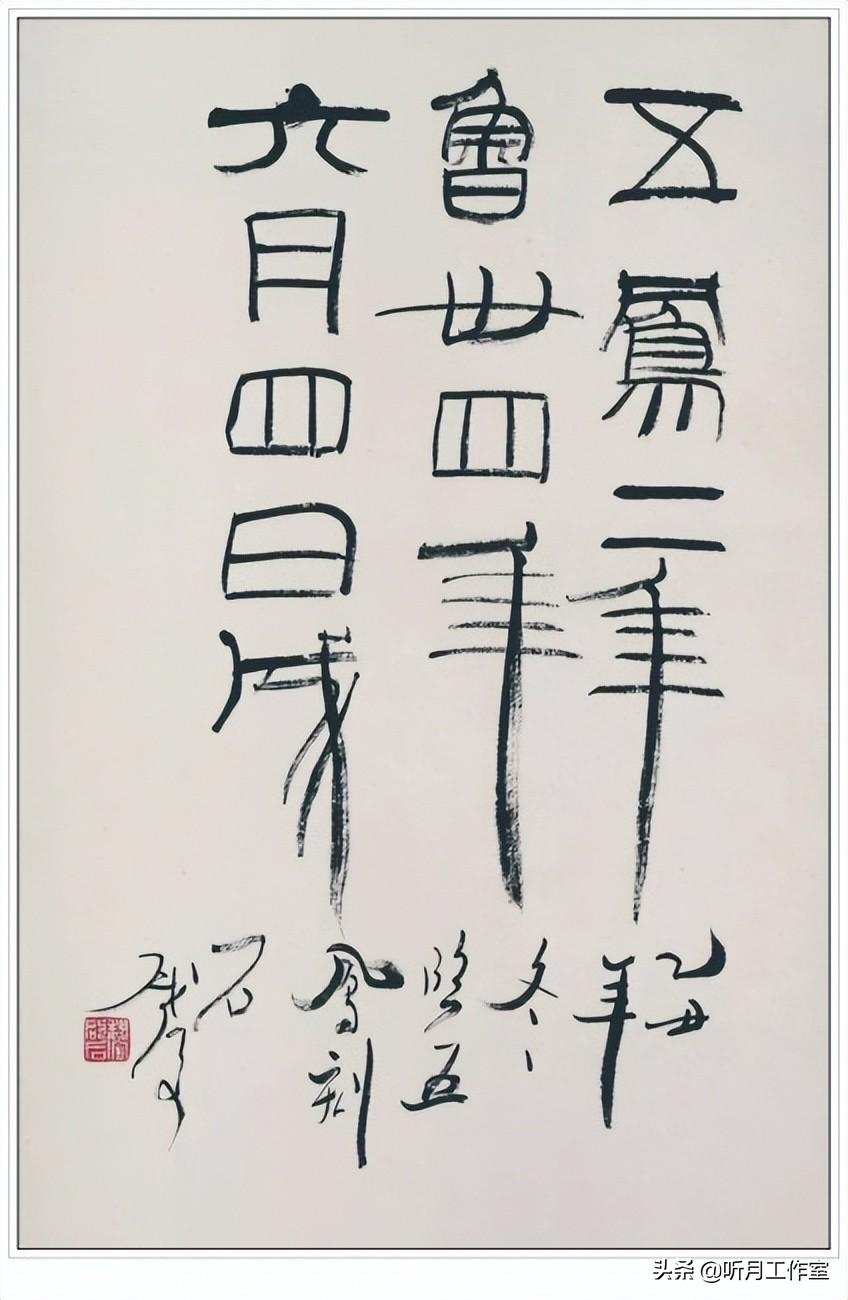 五鳳二年
魯卅四年
六月四日成
乙丑
年
冬
臨五
鳳刻
石
头条 @听月工作室